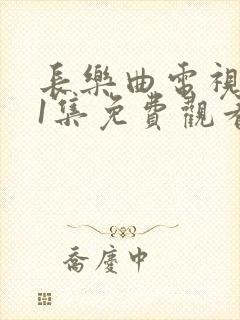 長樂曲電視
1集免費觀看
喬慶中